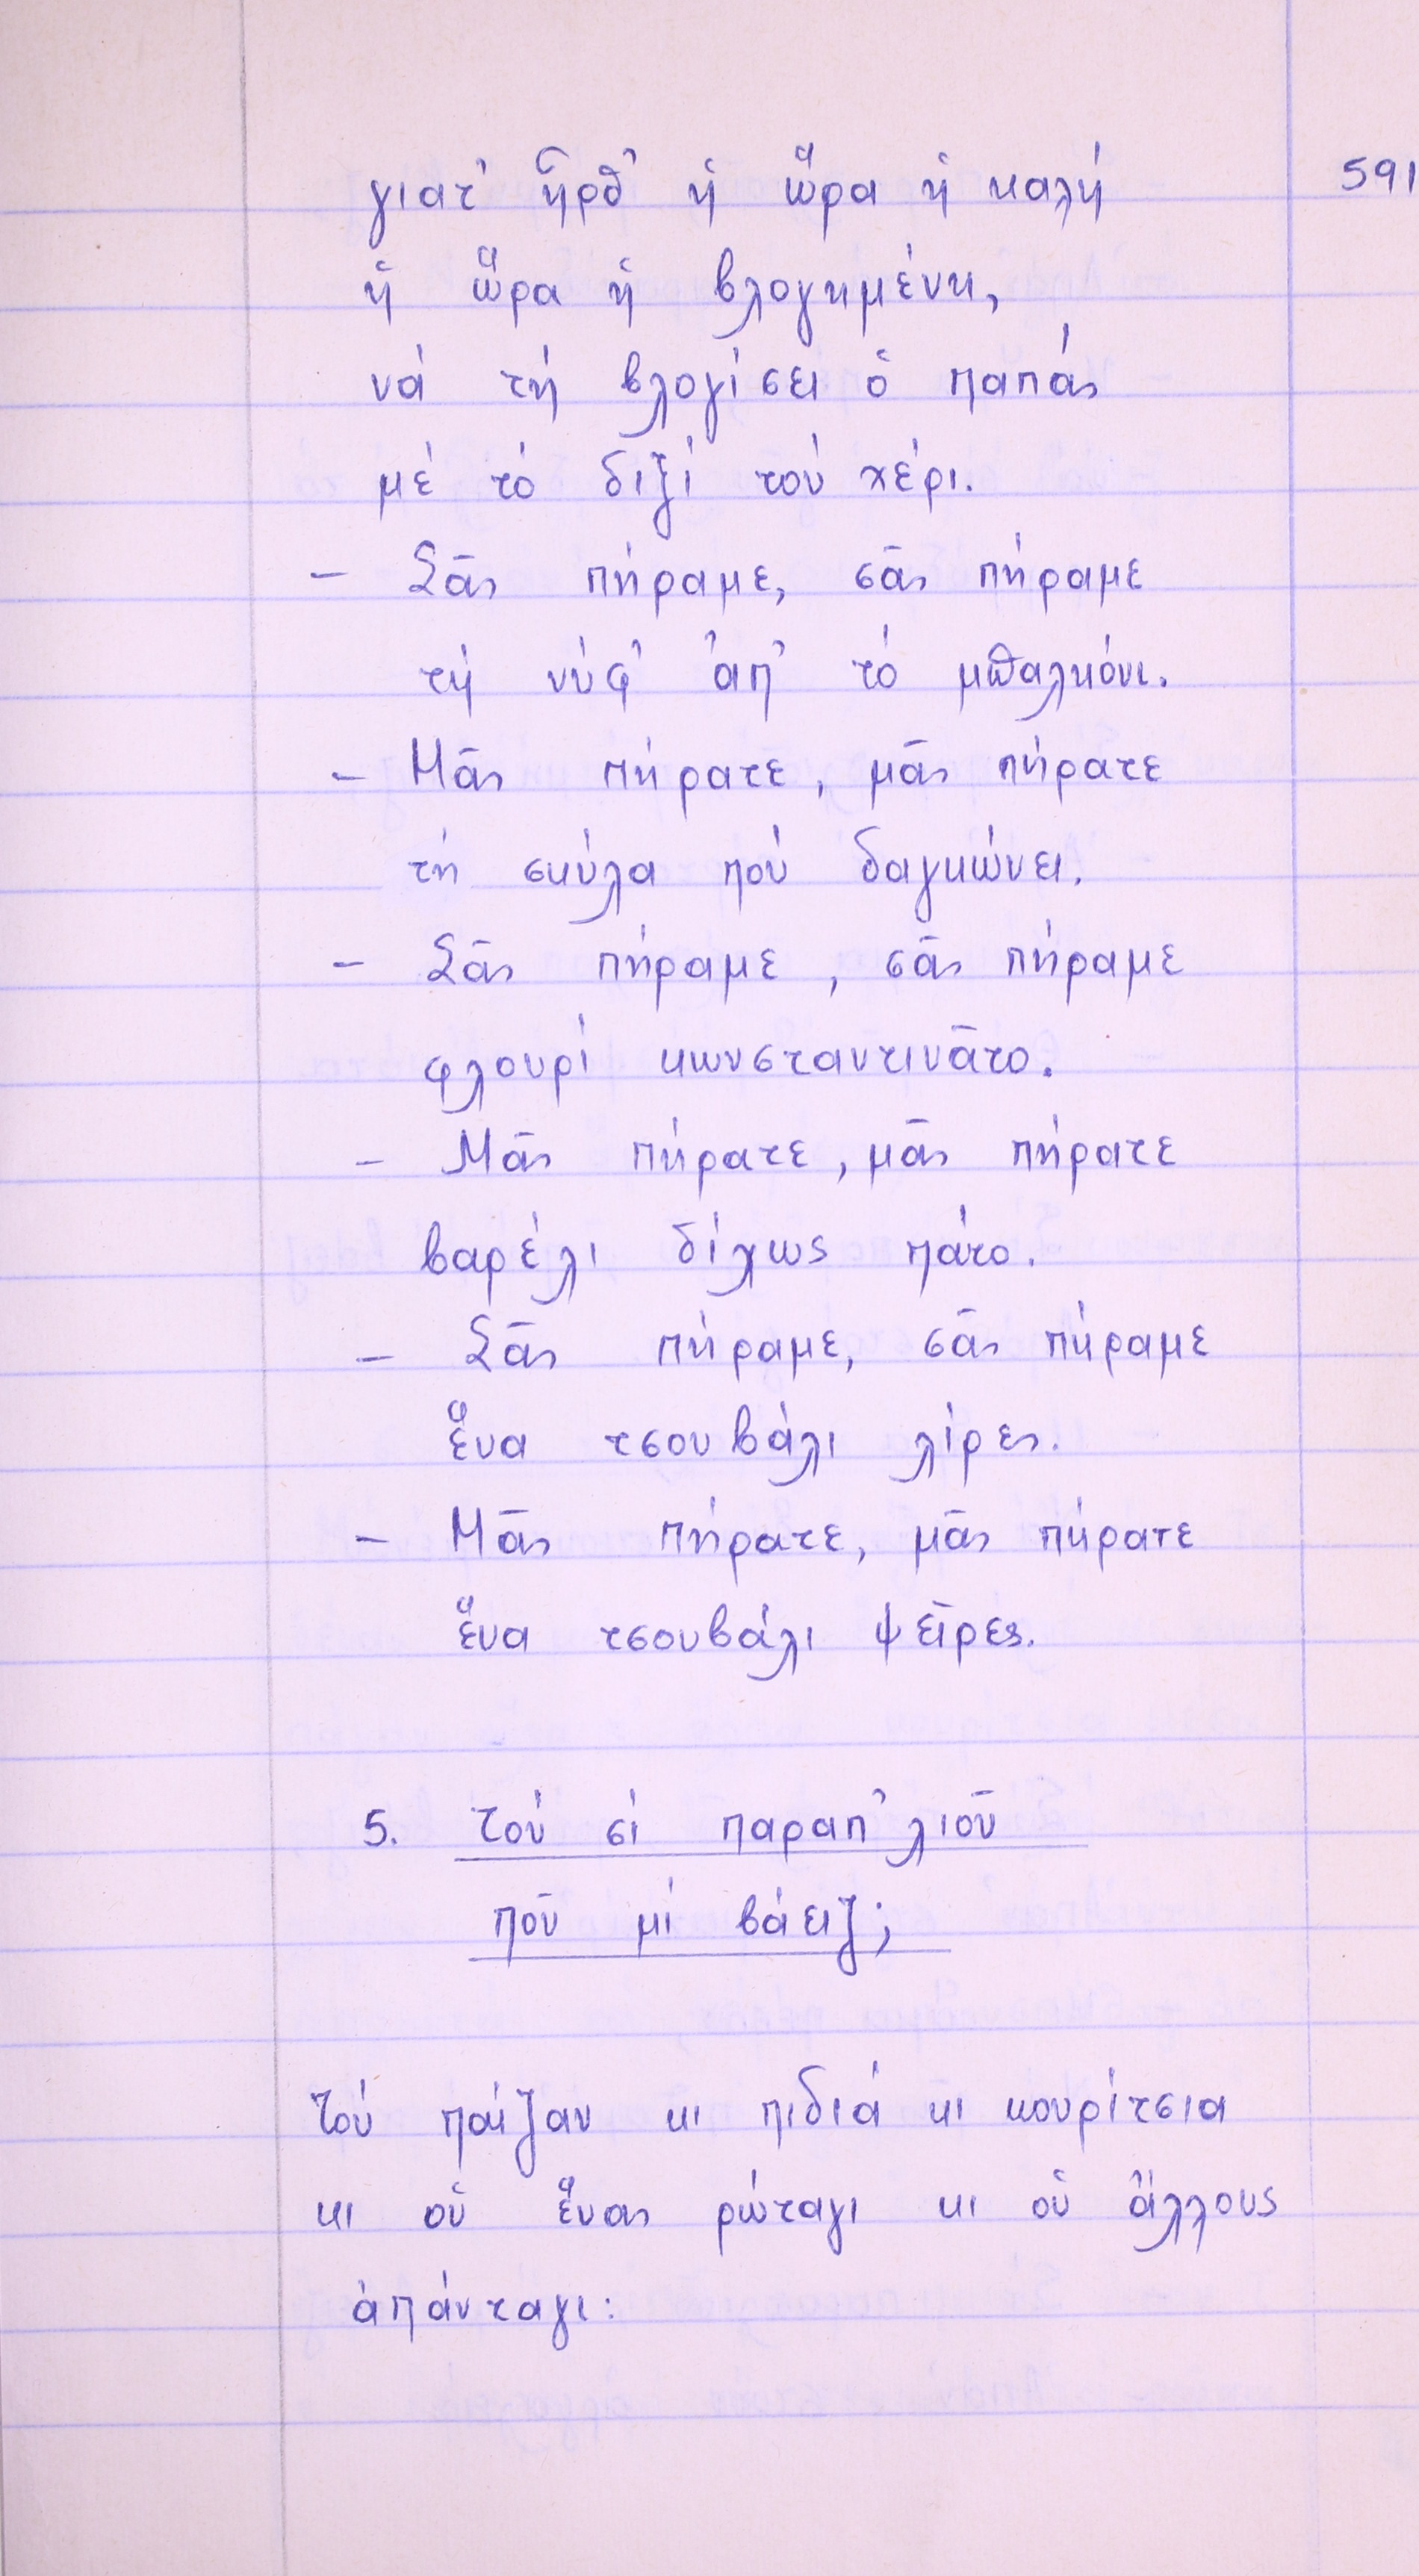 591
γιατ' ἦρθ' ἡ ὥρα ἡ καλή
ἡ ὥρα ἡ βλογημένη,
νά τή βλογίσει ὁ παπάς
μέ τό διξί τού χέρι.
- Σᾶς πήραμε, σᾶς πήραμε
τή νύφ' ἀπ' τό μπαλκόνι.
- Μᾶς πήρατε, μᾶς πήρατε
τή σκύλα πού δαγκώνει.
- Σᾶς πήραμε, σᾶς πήραμε
φλουρί κωνσταντινᾶτο.
- Μᾶς πήρατε, μᾶς πήρατε
βαρέλι δίχως πάτο.
- Σᾶς πήραμε, σᾶς πήραμε
ἕνα τσουβάλι λίρες.
- Μᾶς πήρατε, μᾶς πήρατε
ἕνα τσουβάλι ψεῖρες.
5. Τού σί παραπ'λιοῦ
ποῦ μί βάειζ;
Τού παίζαν κι πιδιά κι κουρίτσια
κι οὑ ἕνας ρώταγι κι οὑ ἄλλους
ἀπάνταγι: